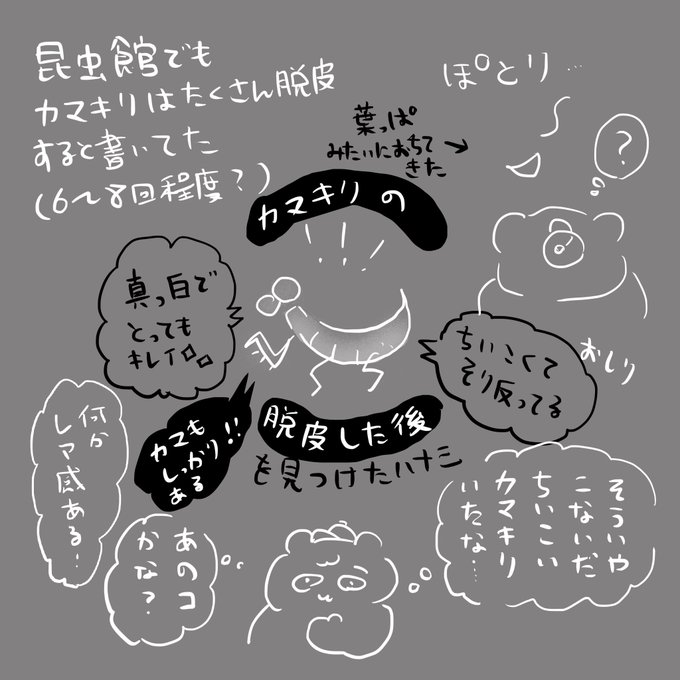 昆虫館でも
カマキリはたくさん脱皮
すると書いてた
(6〜8回程度?)
ぽとり…
葉っぱ
みたいにおちて
きた→
?
カマキリの
真っ白で
とっても
キレイ。。
ちいこくて
そり反ってる
おしり
カマも
しっかり!!
ある
脱皮した後
も見つけたハナミ
何か
レア感ある…
そういや
こないだ
ちいこい
カマキリ
いたな…
あのコ
かな?